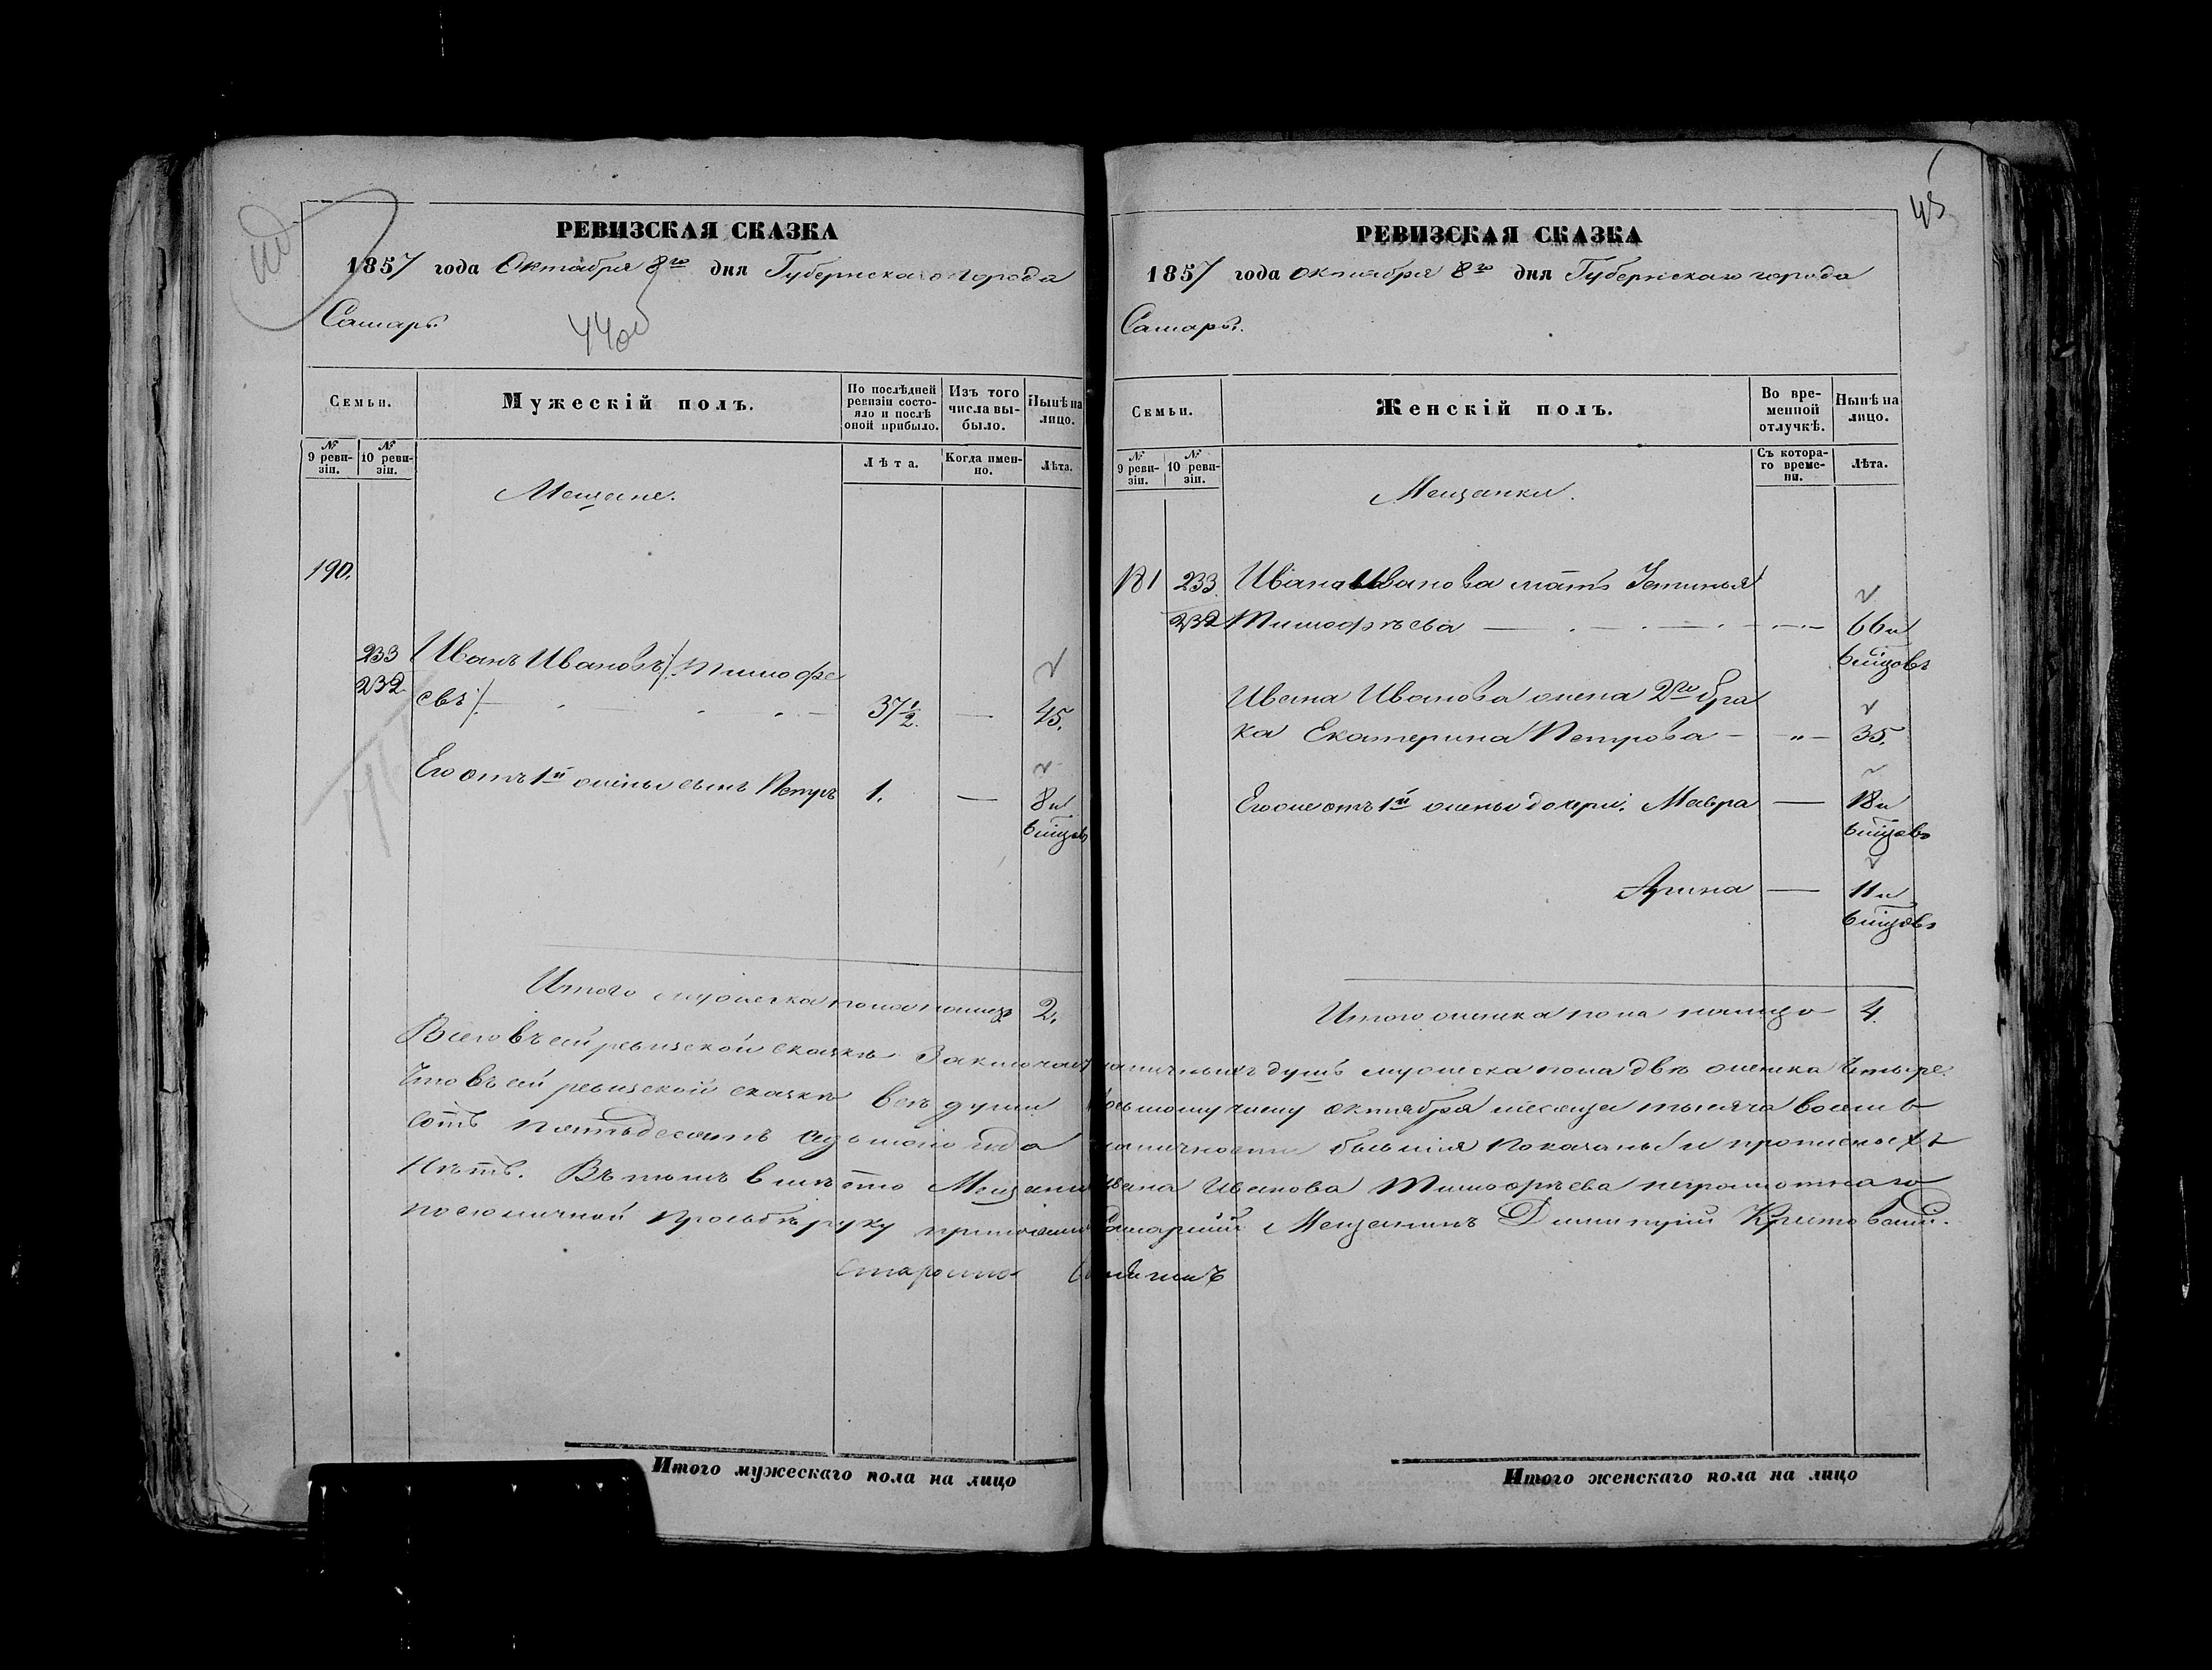 РЕВИЗСКАЯ СКАЗКА
1857 года Октября 8го дня Губернскаго города
Самары.
44об
Семьи.
Мужескій полъ.
По послѣдней ревизіи состояло и послѣ оной прибыло.
Изъ того числа выбыло.
Нынѣ на лицо.
№ 9 ревизіи.
№ 10 ревизіи.
Лѣта.
Когда именно.
Лѣта.
Мещане.
190.
233
232
Иванъ Ивановъ /Тимофе
евъ/ 37½. — 45.
Его отъ 1й жены сынъ Петръ 1. — 8 и
6 мѣцовъ
Итого мужеска пола налицо 2.
РЕВИЗСКАЯ СКАЗКА
45
1857 года Октября 8го дня Губернскаго города
Самары.
Семьи.
Женскій полъ.
Во временной отлучкѣ.
Нынѣ на лицо.
№ 9 ревизіи.
№ 10 ревизіи.
Съ котораго времени.
Лѣта.
Мещанки.
181 233 Ивана Иванова мать Устинья
232 Тимофѣева — 66 и
6 мѣцовъ
Ивана Иванова жена 2го бра
ка Екатерина Петрова — " — 35.
Его же отъ 1й жены дочери: Мавра — 18 и
6 мѣцовъ
Арина — 11 и
6 мѣцовъ
Итого женска пола налицо 4.
Всего въ сей ревизской сказкѣ Заключает наличныхъ душъ мужеска пола двѣ женска Четыре.
Что въ сей ревизской сказкѣ всѣ души восьмому числу октября месяца тысяча восемь
сотъ пятьдесятъ седьмого года наличности бывшія показаны и прописныхъ
Нѣтъ. Въ томъ вмѣсто Мещани Ивана Иванова Тимофѣева неграмотнаго
по еголичной просьбѣ руку приложил Самарскій Мещанинъ Димитрій
Староста
Итого мужескаго пола на лицо
Итого женскаго пола на лицо